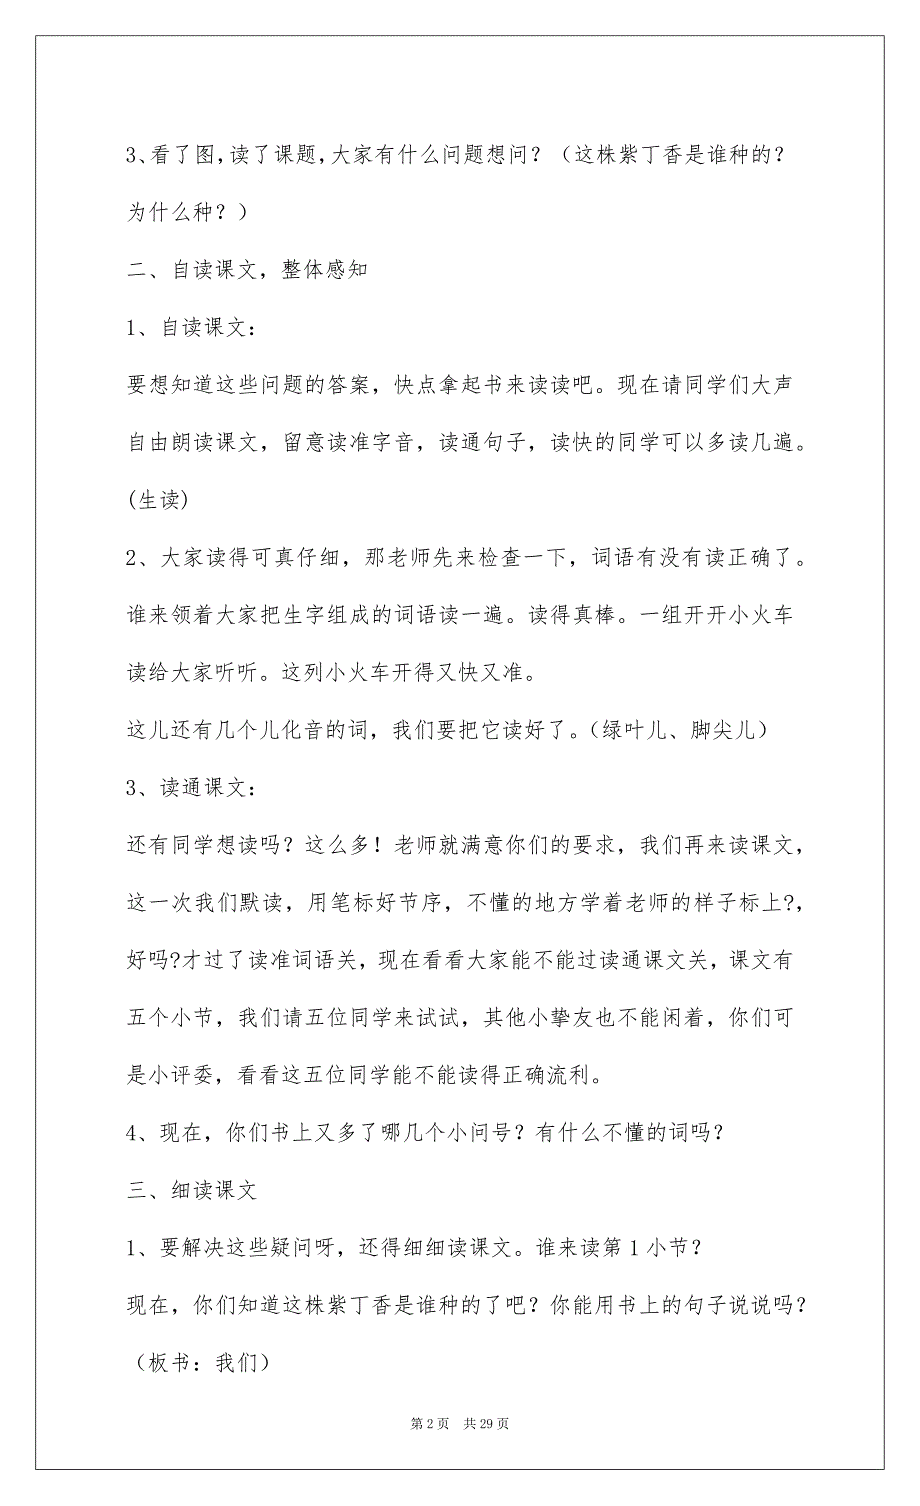 3、看了图,读了课题,大家有什么问题想问？（这株紫丁香是谁种的？
为什么种？）
二、自读课文，整体感知
1、自读课文：
要想知道这些问题的答案，快点拿起书来读读吧。现在请同学们大声
自由朗读课文，留意读准字音，读通句子，读快的同学可以多读几遍。
(生读)
2、大家读得可真仔细，那老师先来检查一下，词语有没有读正确了。
谁来领着大家把生字组成的词语读一遍。读得真棒。一组开开小火车
读给大家听听。这列小火车开得又快又准。
这儿还有几个儿化音的词，我们要把它读好了。（绿叶儿、脚尖儿）
3、读通课文：
还有同学想读吗？这么多！老师就满意你们的要求，我们再来读课文，
这一次我们默读，用笔标好节序，不懂的地方学着老师的样子标上?，
好吗?才过了读准词语关，现在看看大家能不能过读通课文关，课文有
五个小节，我们请五位同学来试试，其他小挚友也不能闲着，你们可
是小评委，看看这五位同学能不能读得正确流利。
4、现在，你们书上又多了哪几个小问号？有什么不懂的词吗？
三、细读课文
1、要解决这些疑问呀，还得细细读课文。谁来读第 1 小节？
现在，你们知道这株紫丁香是谁种的了吧？你能用书上的句子说说吗？
（板书：我们）
第 2 页 共 29 页